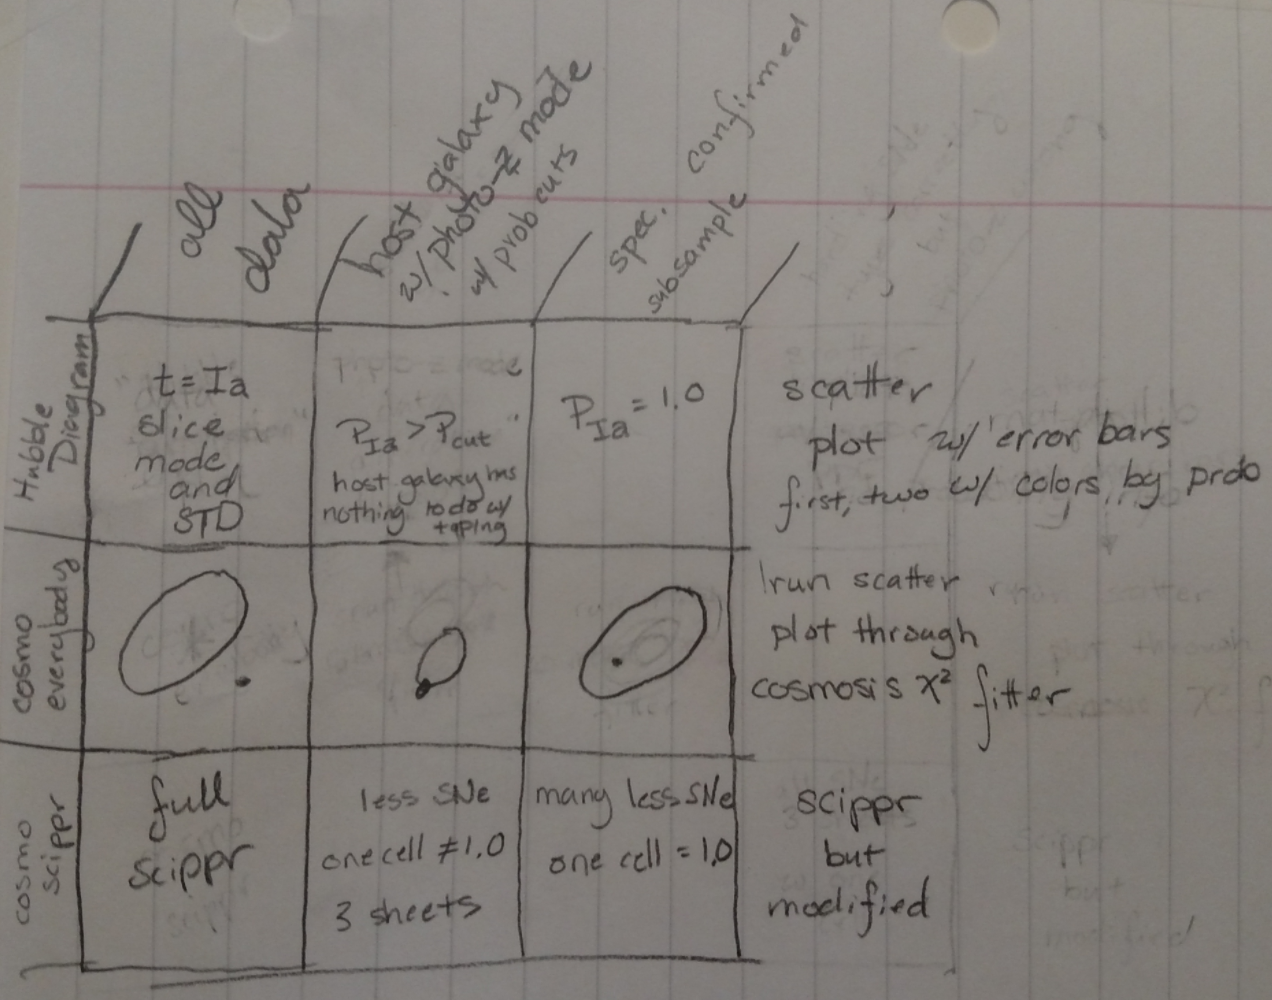 all
data
host galaxy
w/ photo-z mode
w/ prob cuts
spec. confirmed
subsample
Hubble
Diagram
t = Ia
slice
mode
and
STD
P_Ia > P_cut
host galaxy has
nothing to do w/
typing
P_Ia = 1.0
scatter
plot w/ error bars
first, two w/ colors by prob
cosmo
everybody
run scatter
plot through
cosmosis χ² fitter
cosmo
scippr
full
scippr
less SNe
one cell ≠ 1.0
3 sheets
many less SNe
one cell = 1.0
scippr
but
modified